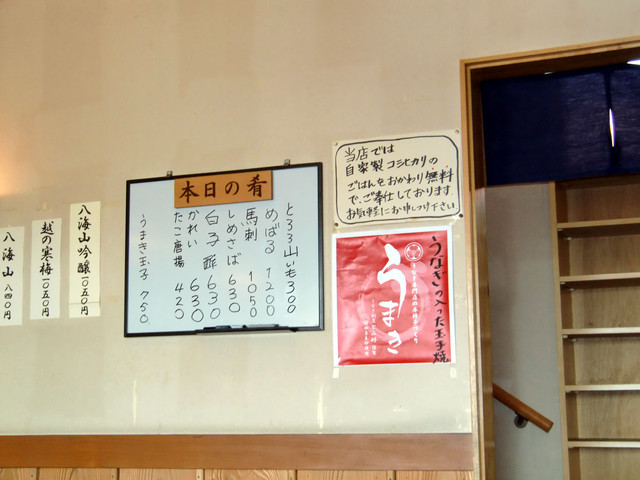 本日の肴
とろろ山いも300
めばる 1200
馬刺 1050
しめさば 630
白子酢 630
かれい 630
たこ唐揚 420
うまき玉子 750
当店では
自家製コシヒカリの
ごはんをおかわり無料
で、ご奉仕しております
お気軽にお申しつけ下さい
うなぎの入った玉子焼
うまき
八海山吟醸一〇五〇円
越の寒梅一〇五〇円
八海山八四〇円